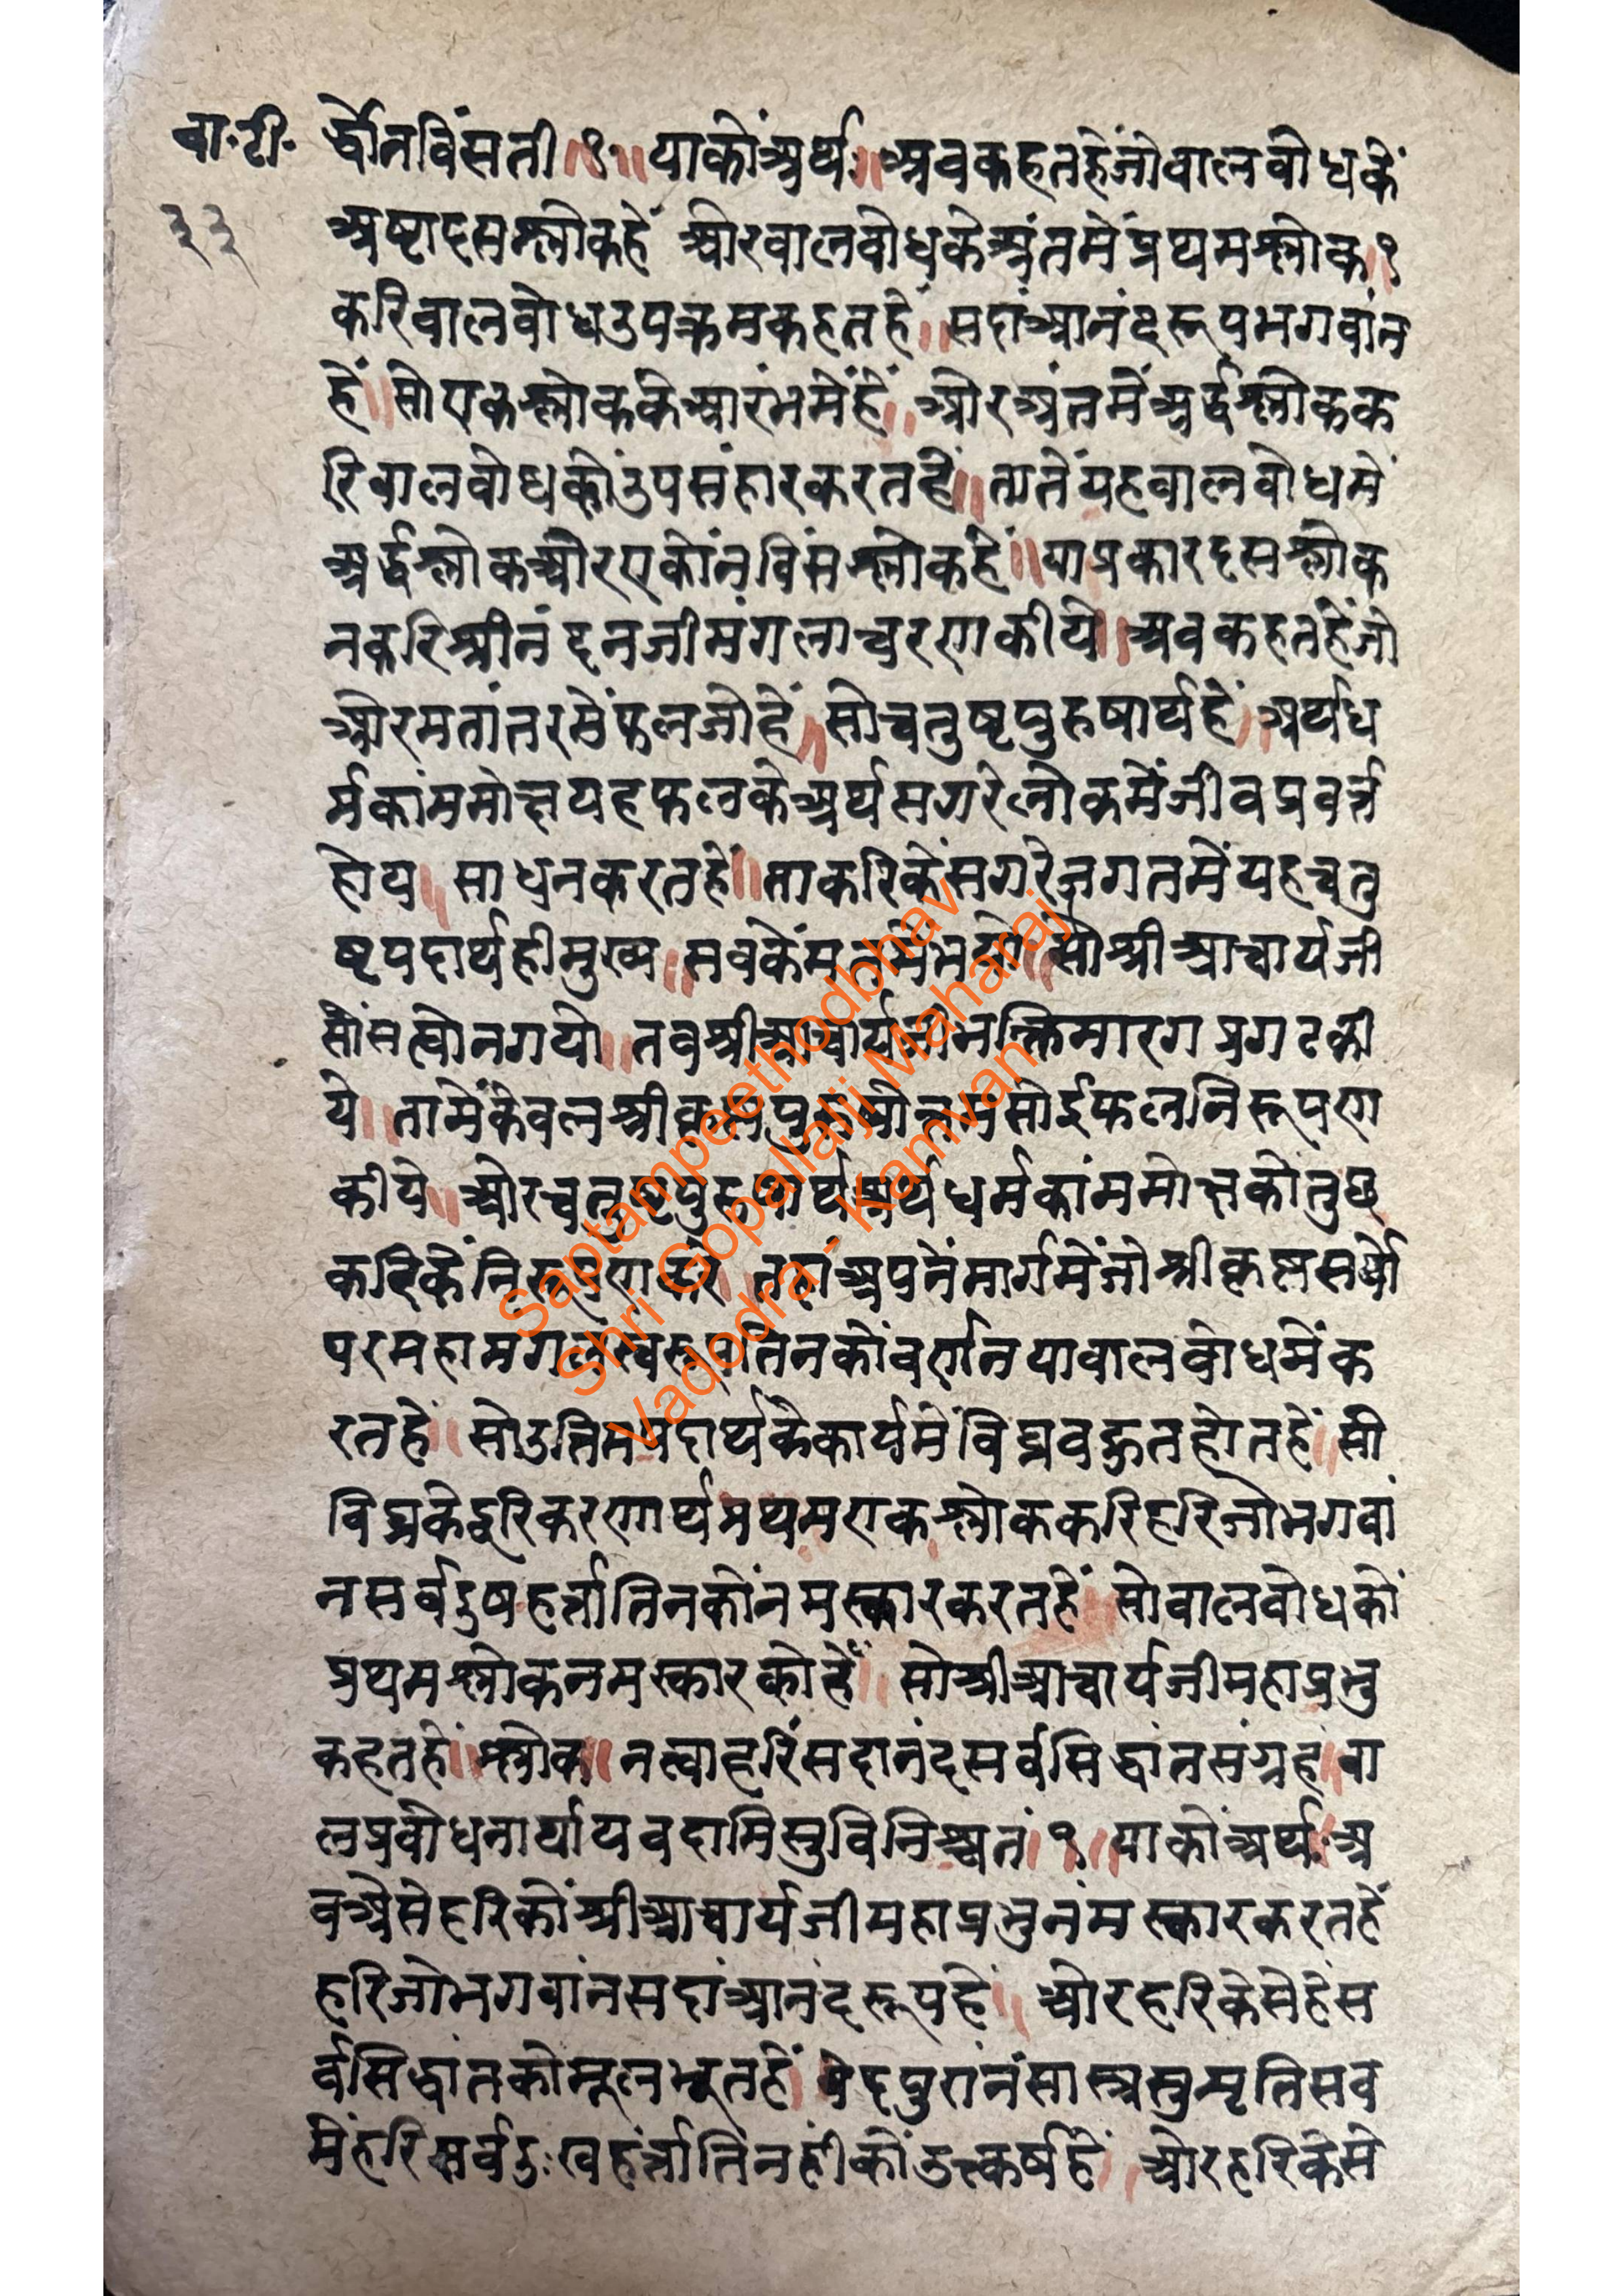 वा.टी.
३३
र्द्धोनविंसती ॥१॥ याकोंअर्थ ॥ अवकहतहेंजोवालवोधकें
अष्टादसश्लोकहें ओरवालवोधकेअंतमेंप्रथमश्लोक॥१
करिवालवोधउपक्रमकहतहें ॥ सदांआनंदरूपभगवांन
हें ॥ सोएकश्लोककेआरंभमेंहें ॥ ओरअंतमेंअर्द्धश्लोकक
रिवालवोधकोंउपसंहारकरतहें ॥ तातेंयहवालवोधमें
अर्द्धश्लोकओरएकोंनविंसश्लोकहें ॥ याप्रकारदसश्लोक
नकरिश्रीनंदनजीमंगलाचरणकीये ॥ अवकहतहेंजो
ओरमतांतरमेंफलजोहें ॥ सोचतुष्टपुरुषार्थहें ॥ अर्थध
र्मकांममोक्षयहफलकेअर्थसगरेलोकमेंजीवप्रवर्त्त
होय ॥ साधनकरतहें ॥ ताकरिकेंसगरेजगतमेंयहचतु
ष्टपदार्थहीमुख्य ॥ सवकेंमतमेंभयो ॥ सोश्रीआचार्यजी
सोंसह्योनगयो ॥ तवश्रीआचार्यजीभक्तिमारगप्रगटकी
ये ॥ तामेंकेवलश्रीकृष्णपुरुषोत्तमसोईफलनिरूपण
कीये ॥ ओरचतुष्टपुरुषार्थअर्थधर्मकांममोक्षकोंतुछ
करिकेंनिरूपणकरे ॥ तहांअपनेंमार्गमेंजोश्रीकृष्णसर्वो
परमहामंगलस्वरूपतिनकोंवर्णनयावालवोधमेंक
रतहें ॥ सोउत्तिमपदार्थकेकार्यमेंविघ्नवहुतहोतहें ॥ सो
विघ्नकेदूरिकरणार्थप्रथमएकश्लोककरिहरिजोभगवां
नसर्वदुषहर्त्तातिनकोंनमस्कारकरतहें ॥ सोवालवोधकों
प्रथमश्लोकनमस्कारकोहें ॥ सोश्रीआचार्यजीमहाप्रभु
कहतहें ॥ श्लोक ॥ नत्वाहरिंसदानंदसर्वसिद्धांतसंग्रहं ॥ वा
लप्रवोधनार्थायवदामिसुविनिश्चितं ॥ १ ॥ याकोंअर्थ ॥ अ
वअैसेहरिकोंश्रीआचार्यजीमहाप्रभुनंमस्कारकरतहें
हरिजोभगवांनसदांआनंदरूपहें ॥ ओरहरिकेसेहेंस
र्वसिद्धांतकोमूलभूतहें ॥ वेदपुरांनंसास्त्रसुमृतिसव
मेंहरिसर्वदुःखहंर्त्तातिनहींकोंउत्कर्षहें ॥ ओरहरिकेसे